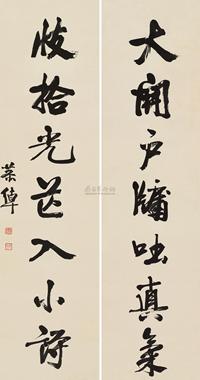 大開戶牖吐真氣
收拾光芒入小詩
葉倬